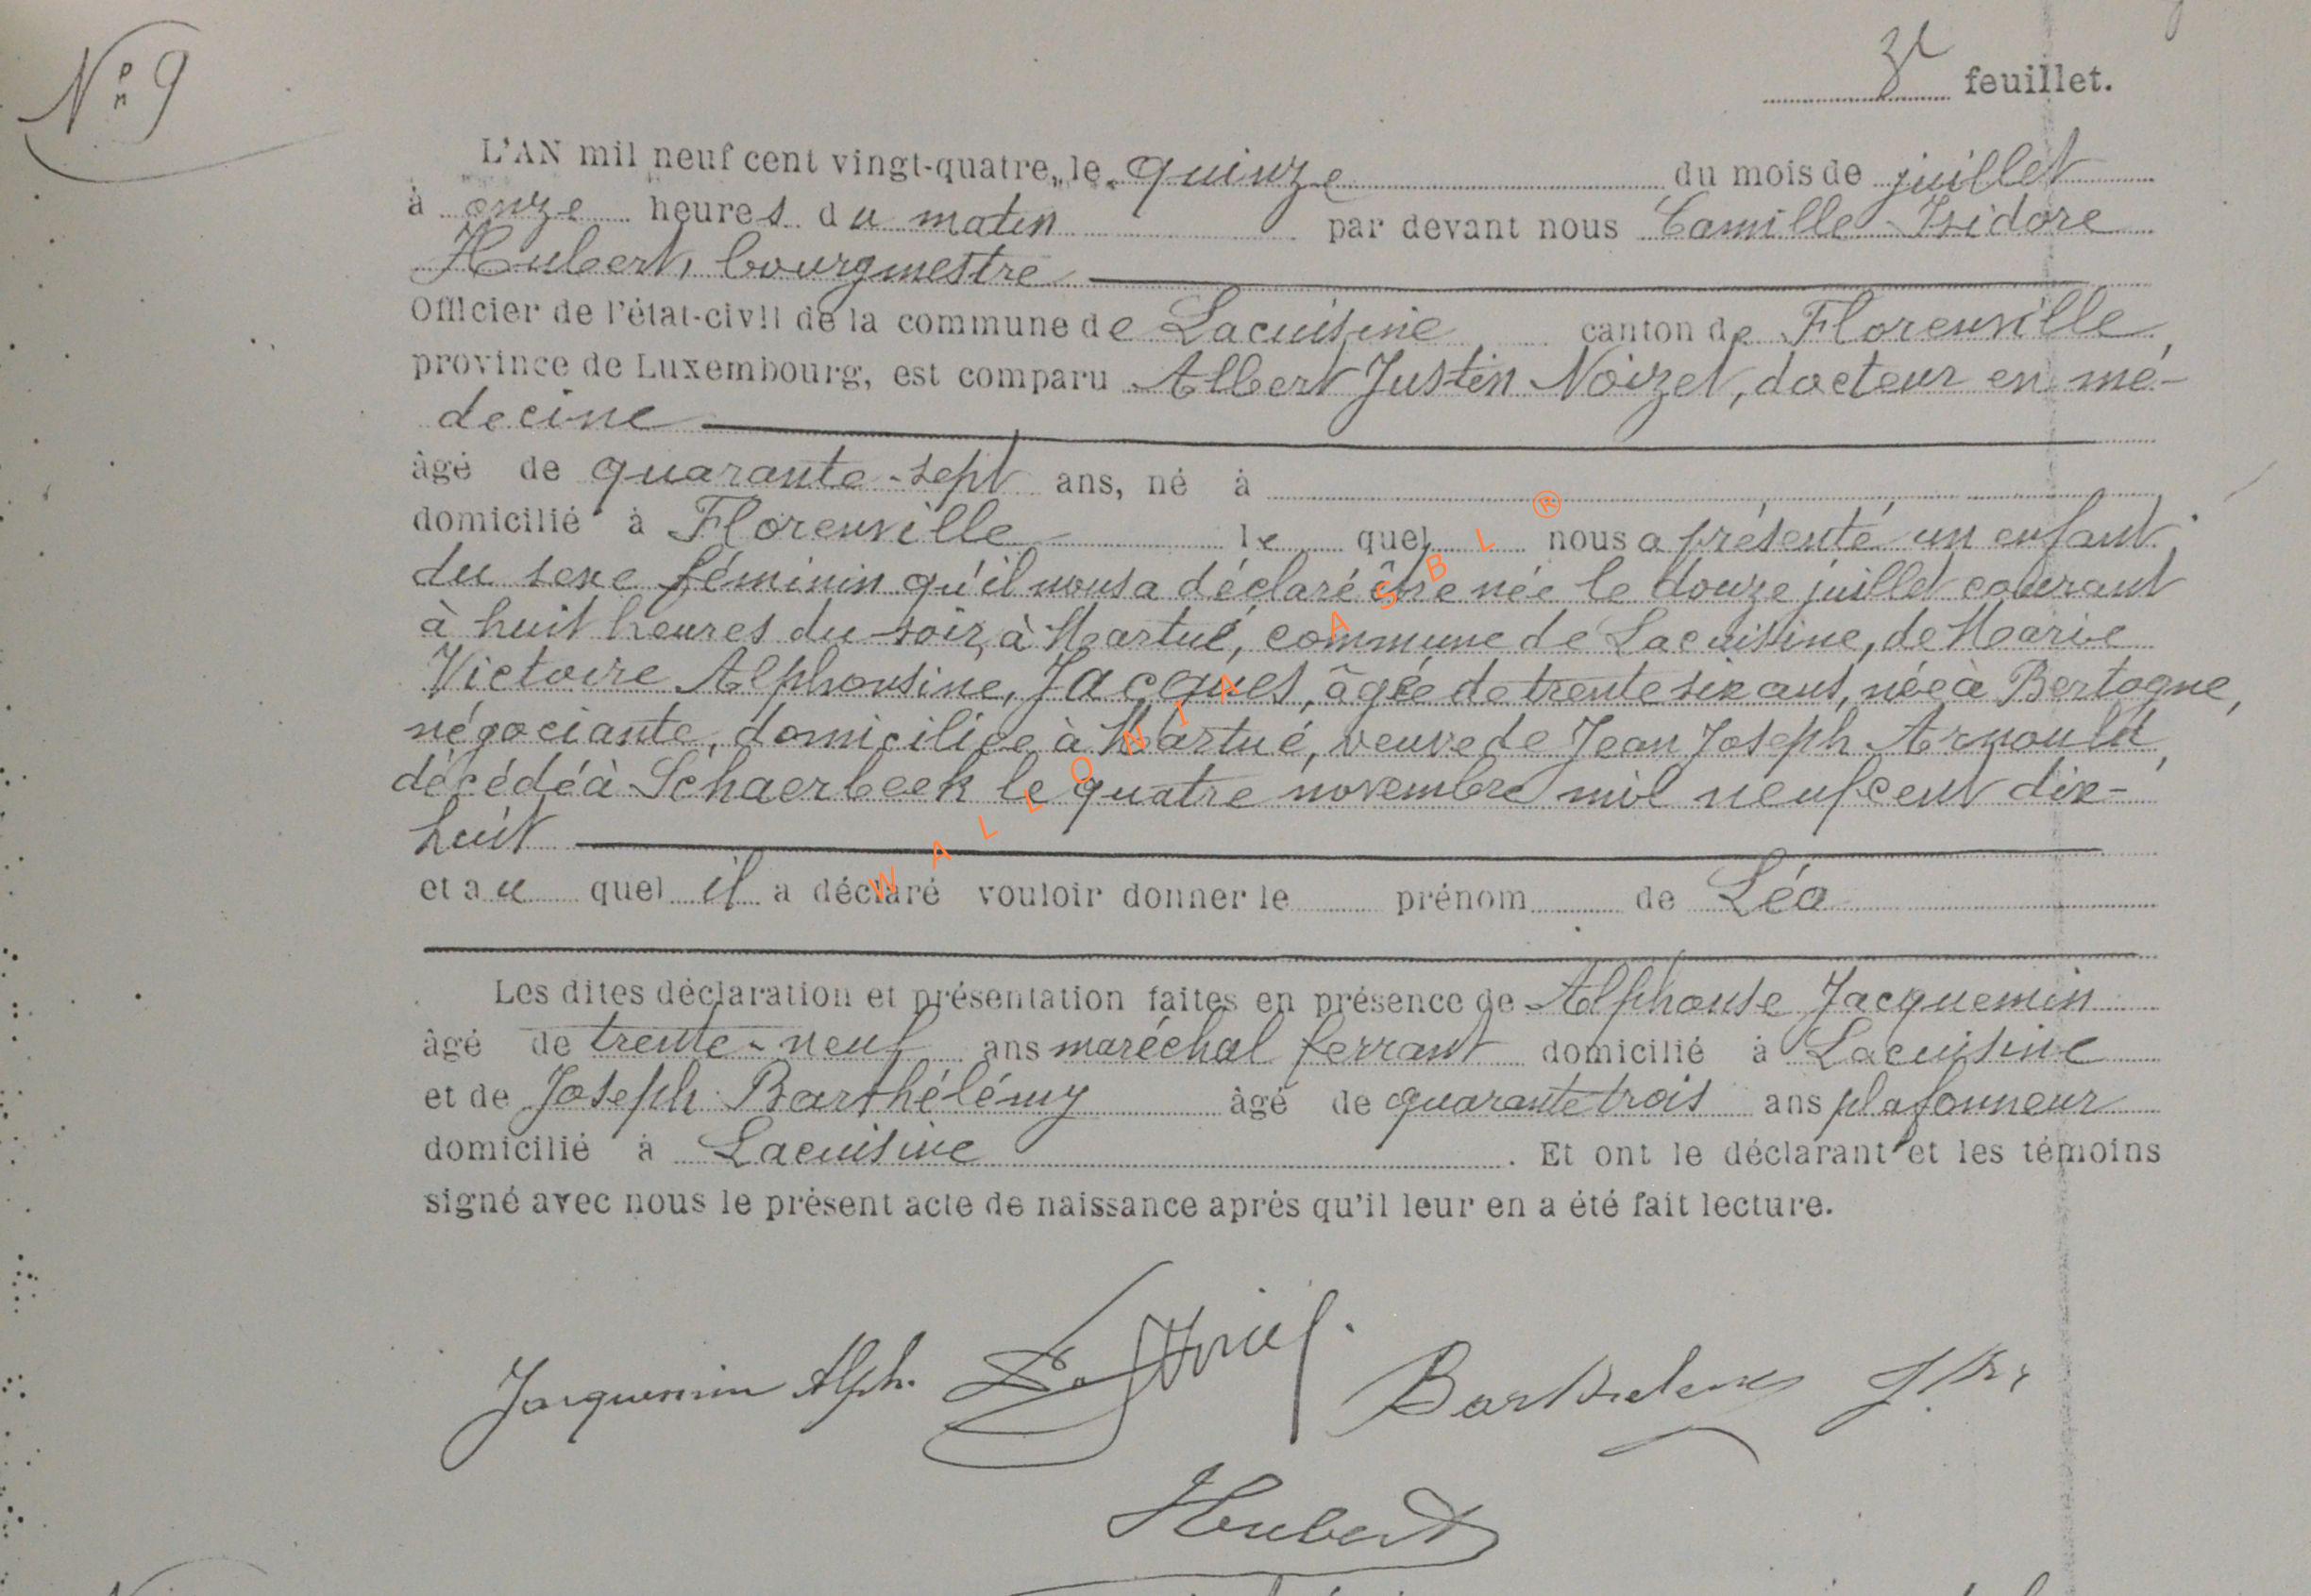 N° 9
3e feuillet.
L'AN mil neuf cent vingt-quatre, le quinze du mois de juillet
à onze heures du matin par devant nous Camille Isidore
Hubert, bourgmestre
Officier de l'état-civil de la commune de Lacuisine canton de Florenville,
province de Luxembourg, est comparu Albert Justin Noizet, docteur en mé-
decine
âgé de quarante-sept ans, né à
domicilié à Florenville lequel nous a présenté un enfant
du sexe féminin qu'il nous a déclaré être née le douze juillet courant
à huit heures du soir, à Martué, commune de Lacuisine, de Marie
Victoire Alphonsine, Jacques, âgée de trente six ans, née à Bertogne,
négociante, domiciliée à Martué, veuve de Jean Joseph Arnould,
décédé à Schaerbeek le quatre novembre mil neuf cent dix-
huit
et au quel il a déclaré vouloir donner le prénom de Léa
Les dites déclaration et présentation faites en présence de Alphonse Jacquemin
âgé de trente-neuf ans maréchal ferrant domicilié à Lacuisine
et de Joseph Barthélémy âgé de quarante trois ans plafonneur
domicilié à Lacuisine . Et ont le déclarant et les témoins
signé avec nous le présent acte de naissance après qu'il leur en a été fait lecture.
Jacquemin Alph. Barthelemy
Hubert
WALLONIA ASBL ®